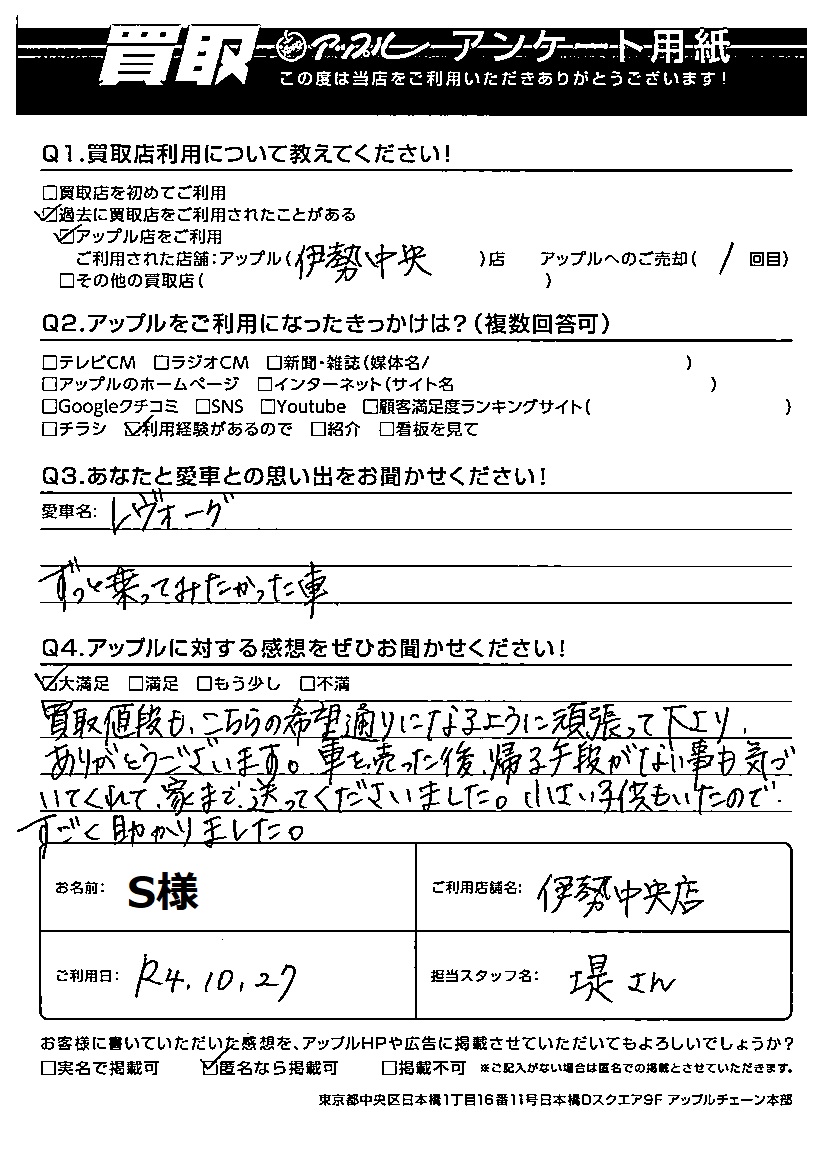 買取 アップル アンケート用紙
この度は当店をご利用いただきありがとうございます!
Q1.買取店利用について教えてください!
□買取店を初めてご利用
☑過去に買取店をご利用されたことがある
☑アップル店をご利用
ご利用された店舗:アップル(伊勢中央 )店 アップルへのご売却( / 回目)
□その他の買取店( )
Q2.アップルをご利用になったきっかけは?(複数回答可)
□テレビCM □ラジオCM □新聞・雑誌(媒体名/ )
□アップルのホームページ □インターネット(サイト名 )
□Googleクチコミ □SNS □Youtube □顧客満足度ランキングサイト( )
□チラシ ☑利用経験があるので □紹介 □看板を見て
Q3.あなたと愛車との思い出をお聞かせください!
愛車名: レヴォーグ
ずっと乗ってみたかった車
Q4.アップルに対する感想をぜひお聞かせください!
☑大満足 □満足 □もう少し □不満
買取値段も、こちらの希望通りになるように頑張って下より、
ありがとうございます。車を売った後、帰る手段がない事も気づ
いてくれて、家まで送ってくださいました。小さい子供もいたので
すごく助かりました。
お名前: S様 ご利用店舗名: 伊勢中央店
ご利用日: R4.10.27 担当スタッフ名: 堤さん
お客様に書いていただいた感想を、アップルHPや広告に掲載させていただいてもよろしいでしょうか?
□実名で掲載可 ☑匿名なら掲載可 □掲載不可 ※ご記入がない場合は匿名での掲載とさせていただきます。
東京都中央区日本橋1丁目16番11号日本橋Dスクエア9F アップルチェーン本部